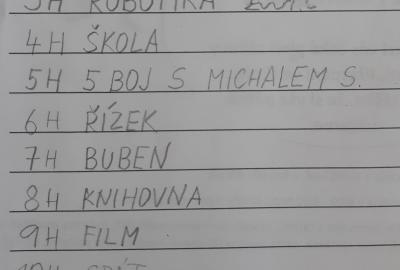 3H ROBOTIKA
4H ŠKOLA
5H 5 BOJ S MICHALEM S.
6H ŘÍZEK
7H BUBEN
8H KNIHOVNA
9H FILM
10H SPÁT